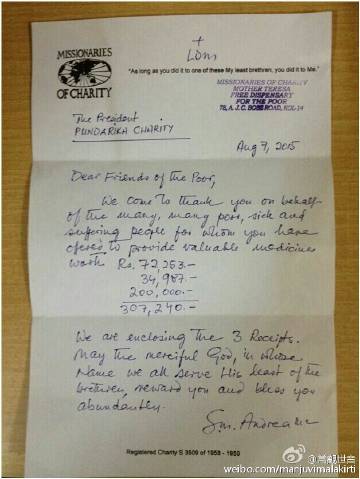 MISSIONARIES
OF CHARITY
+
LDM
"As long as you did it to one of these My least brethren, you did it to Me."
MISSIONARIES OF CHARITY
MOTHER TERESA
FREE DISPENSARY
FOR THE POOR
78, A. J. C. BOSE ROAD, KOL-14
The President
PUNDARIKA CHARITY
Aug 7, 2015
Dear Friends of the Poor,
We come to thank you on behalf
of the many, many poor, sick and
suffering people for whom you have
offered to provide valuable medicines
worth Rs. 72,253.-
34,987.-
200,000.-
307,240.-
We are enclosing the 3 Receipts.
May the merciful God, in whose
Name we all serve His least of the
brethren, reward you and bless you
abundantly.
Sm. Andrea MC
Registered Charity S 3509 of 1958 - 1959
@常觀世音
weibo.com/manjuvimalakirti